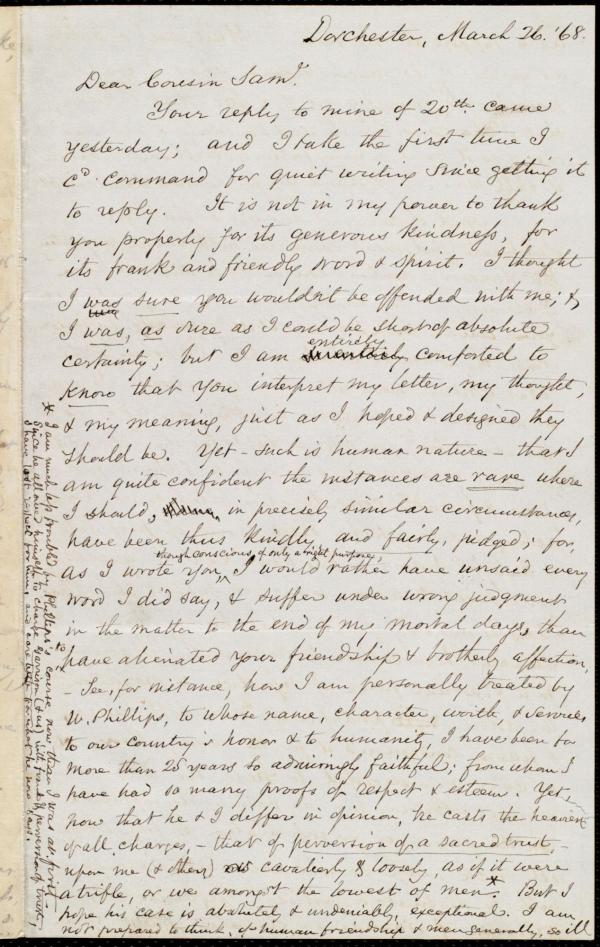 Dorchester, March 26. '68.
Dear Cousin Saml.
Your reply to mine of 20th. came
yesterday; and I take the first time I
cd. command for quiet writing since getting it
to reply. It is not in my power to thank
you properly for its generous kindness, for
its frank and friendly word & spirit. I thought
I was sure you wouldn't be offended with me; &
I was, as sure as I could be short of absolute
certainty; but I am entirely comforted to
know that you interpret my letter, my thought,
& my meaning, just as I hoped & designed they
should be. Yet - such is human nature - that I
am quite confident the instances are rare where
I should, in precisely similar circumstances,
have been thus kindly and fairly, judged; for,
as I wrote you, though conscious of only a right purpose, I would rather have unsaid every
word I did say, & suffer under wrong judgment
in the matter to the end of my mortal days, than
to have alienated your friendship & brotherly affection.
- See, for instance, how I am personally treated by
W. Phillips, to whose name, character, worth, & services
to our country's honor & to humanity, I have been for
more than 25 years so admiringly faithful; from whom I
have had so many proofs of respect & esteem. Yet,
now that he & I differ in opinion, he casts the heaviest
of all charges, - that of perversion of a sacred trust, -
upon me (& others) as cavalierly & loosely, as if it were
a trifle, or we amongst the lowest of men.* But I
hope his case is absolutely & undeniably, exceptional. I am
not prepared to think, of human friendship & men generally, so ill
* I am much less troubled by Phillips's course now than I was at first.
Since he allowed himself to charge Garrison (& us) with fraud & perversion of trust,
I have lost respect for him, and care little for what he now says.